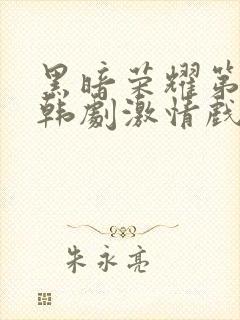 黑暗荣耀第
韩剧激情戏
朱永亮